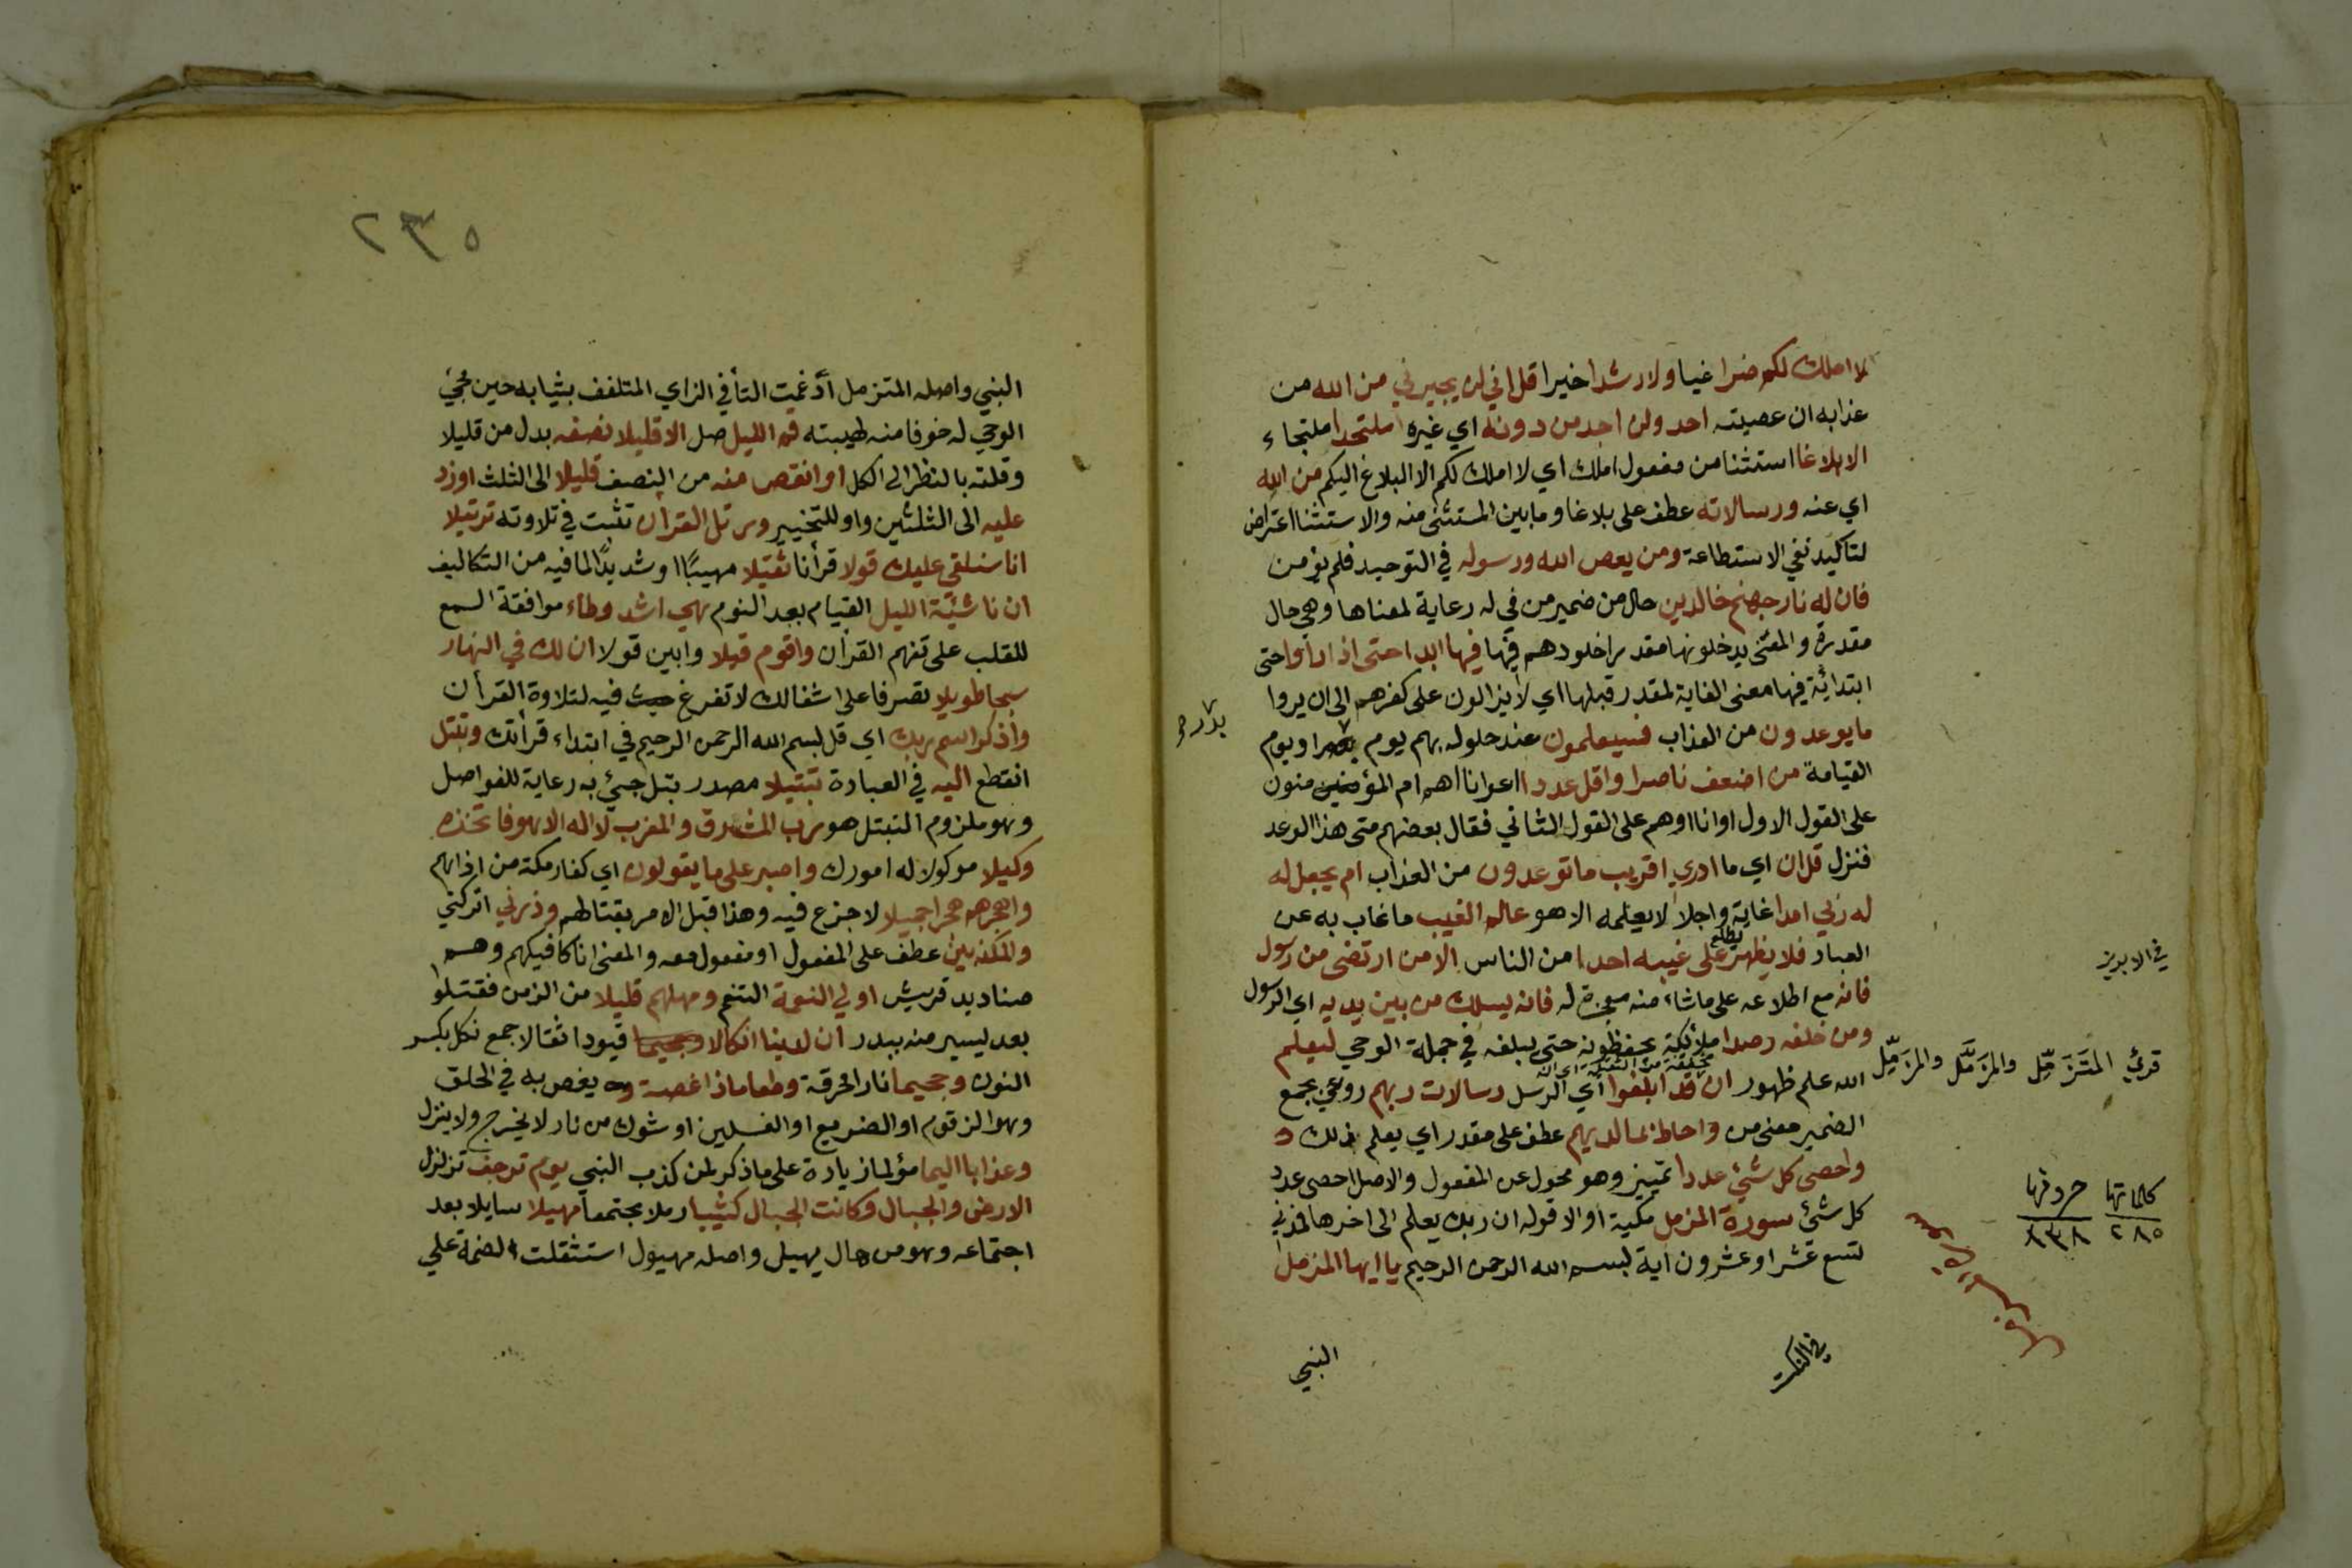 لا املك لكم ضرا غيا ولا رشدا خيرا قل اني لن يجيرني من الله من
عذابه ان عصيته احد ولن اجد من دونه اي غيره ملتحدا ملتجاء
الا بلاغا استثنا من مفعول املك اي لا املك لكم الا البلاغ اليكم من الله
اي عنه ورسالاته عطف على بلاغا وما بين المستثنى منه والاستثنا اعتراض
لتاكيد نفي الاستطاعة ومن يعص الله ورسوله في التوحيد فلم يؤمن
فان له نار جهنم خالدين حال من ضمير من في له رعاية لمعناها وهي حال
مقدرة والمعنى يدخلونها مقدرا خلودهم فيها فيها ابدا حتى اذا رأوا حتى
ابتدائية فيها معنى الغاية لمقدر قبلها اي لا يزالون على كفرهم الى ان يروا
ما يوعدون من العذاب فسيعلمون عند حلوله بهم يوم او يوم
بدر
القيامة من اضعف ناصرا واقل عددا اعوانا اهم ام المؤمنون
على القول الاول او انا او هم على القول الثاني فقال بعضهم متى هذا الوعد
فنزل قل ان اي ما ادري اقريب ما توعدون من العذاب ام يجعل له
له ربي امدا غاية واجلا لا يعلمه الا هو عالم الغيب ما غاب به عن
العباد فلا يظهر يطلع على غيبه احدا من الناس الا من ارتضى من رسول
في الابريز
فانه مع اطلاعه على ماشاء منه معجزة له فانه يسلك من بين يديه اي الرسول
ومن خلفه رصدا ملائكة يحفظونه حتى يبلغه في جملة الوحي ليعلم
مخففة من الثقيلة اي انه
الله علم ظهور ان قد ابلغوا اي الرسل رسالات ربهم روعي بجمع
قرئ المتزمل والمزمل والمزمل
الضمير معنى من واحاط بما لديهم عطف على مقدر اي يعلم ذلك و
واحصى كل شئ عددا تمييز وهو محول عن المفعول والاصل احصى عدد
كل شئ سورة المزمل مكية او الا قوله ان ربك يعلم الى اخرها فمدني
كلماتها ٢٨٥
حروفها ٨٣٨
تسع عشر او عشرون اية بسم الله الرحمن الرحيم يا ايها المزمل
في النكت
النبي
٢٣٥
النبي واصله المتزمل أدغمت التأ في الزاي المتلفف بثيابه حين مجئ
الوحي له خوفا منه لهيبته قم الليل صل الا قليلا نصفه بدل من قليلا
وقلته بالنظر الى الكل او انقص منه من النصف قليلا الى الثلث او زد
عليه الى الثلثين واو للتخيير ورتل القرأن تثبت في تلاوته ترتيلا
انا سنلقي عليك قولا قرأنا ثقيلا مهيبًا او شديدًا لما فيه من التكاليف
ان ناشئة الليل القيام بعد النوم هي اشد وطاء موافقة السمع
للقلب على تفهم القرأن واقوم قيلا وابين قولا ان لك في النهار
سبحا طويلا تصرفا على اشغالك لا تفرغ فيه لتلاوة القرأن
واذكر اسم ربك اي قل بسم الله الرحمن الرحيم في ابتداء قرأتك وتبتل
انقطع اليه في العبادة تبتيلا مصدر بتل جئ به رعاية للفواصل
وهو ملزوم التبتل هو رب المشرق والمغرب لا اله الا هو فاتخذه
وكيلا موكولا له امورك واصبر على ما يقولون اي كفار مكة من اذاهم
واهجرهم هجرا جميلا لا جزع فيه وهذا قبل الامر بقتالهم وذرني اتركني
والمكذبين عطف على المفعول او مفعول معه والمعنى انا كافيكهم وهم
صناديد قريش اولي النعمة التنعم ومهلهم قليلا من الزمن فقتلوا
بعد يسير منه ببدر ان لدينا انكالا قيودا ثقالا جمع نكل بكسر
النون وجحيما نارا محرقة وطعاما ذا غصة يغص به في الحلق
وهو الزقوم او الضريع او الغسلين او شوك من نار لا يخرج ولا ينزل
وعذابا اليما مؤلما زيادة على ما ذكر لمن كذب النبي يوم ترجف تزلزل
الارض والجبال وكانت الجبال كثيبا رملا مجتمعا مهيلا سايلا بعد
اجتماعه وهو من هال يهيل واصله مهيول استثقلت الضمة على